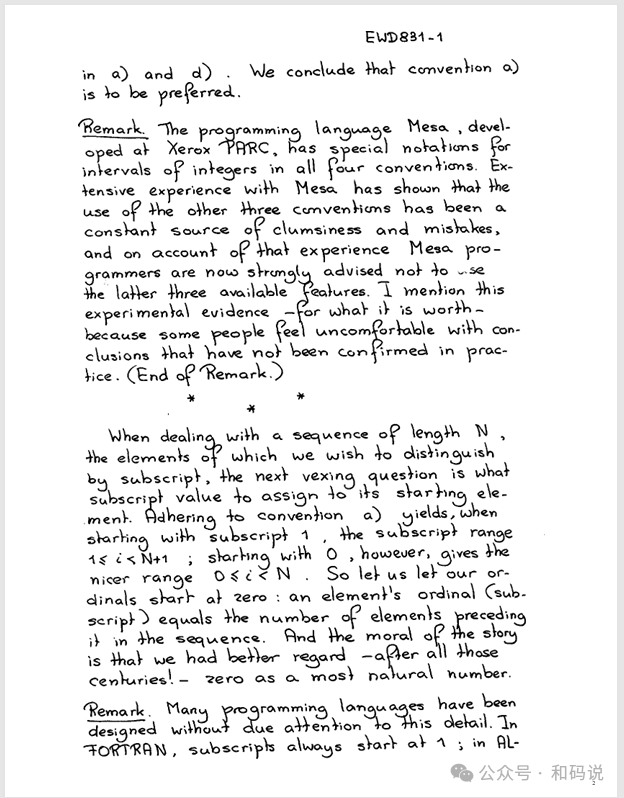 EWD831-1
in a) and d). We conclude that convention a)
is to be preferred.
Remark. The programming language Mesa, devel-
oped at Xerox PARC, has special notations for
intervals of integers in all four conventions. Ex-
tensive experience with Mesa has shown that the
use of the other three conventions has been a
constant source of clumsiness and mistakes,
and on account of that experience Mesa pro-
grammers are now strongly advised not to use
the latter three available features. I mention this
experimental evidence -for what it is worth-
because some people feel uncomfortable with con-
clusions that have not been confirmed in prac-
tice. (End of Remark.)
* * *
When dealing with a sequence of length N,
the elements of which we wish to distinguish
by subscript, the next vexing question is what
subscript value to assign to its starting ele-
ment. Adhering to convention a) yields, when
starting with subscript 1, the subscript range
1 ≤ i < N+1 ; starting with 0, however, gives the
nicer range 0 ≤ i < N. So let us let our or-
dinals start at zero: an element's ordinal (sub-
script) equals the number of elements preceding
it in the sequence. And the moral of the story
is that we had better regard -after all those
centuries!- zero as a most natural number.
Remark. Many programming languages have been
designed without due attention to this detail. In
FORTRAN, subscripts always start at 1; in AL-
公众号 · 和码说
2